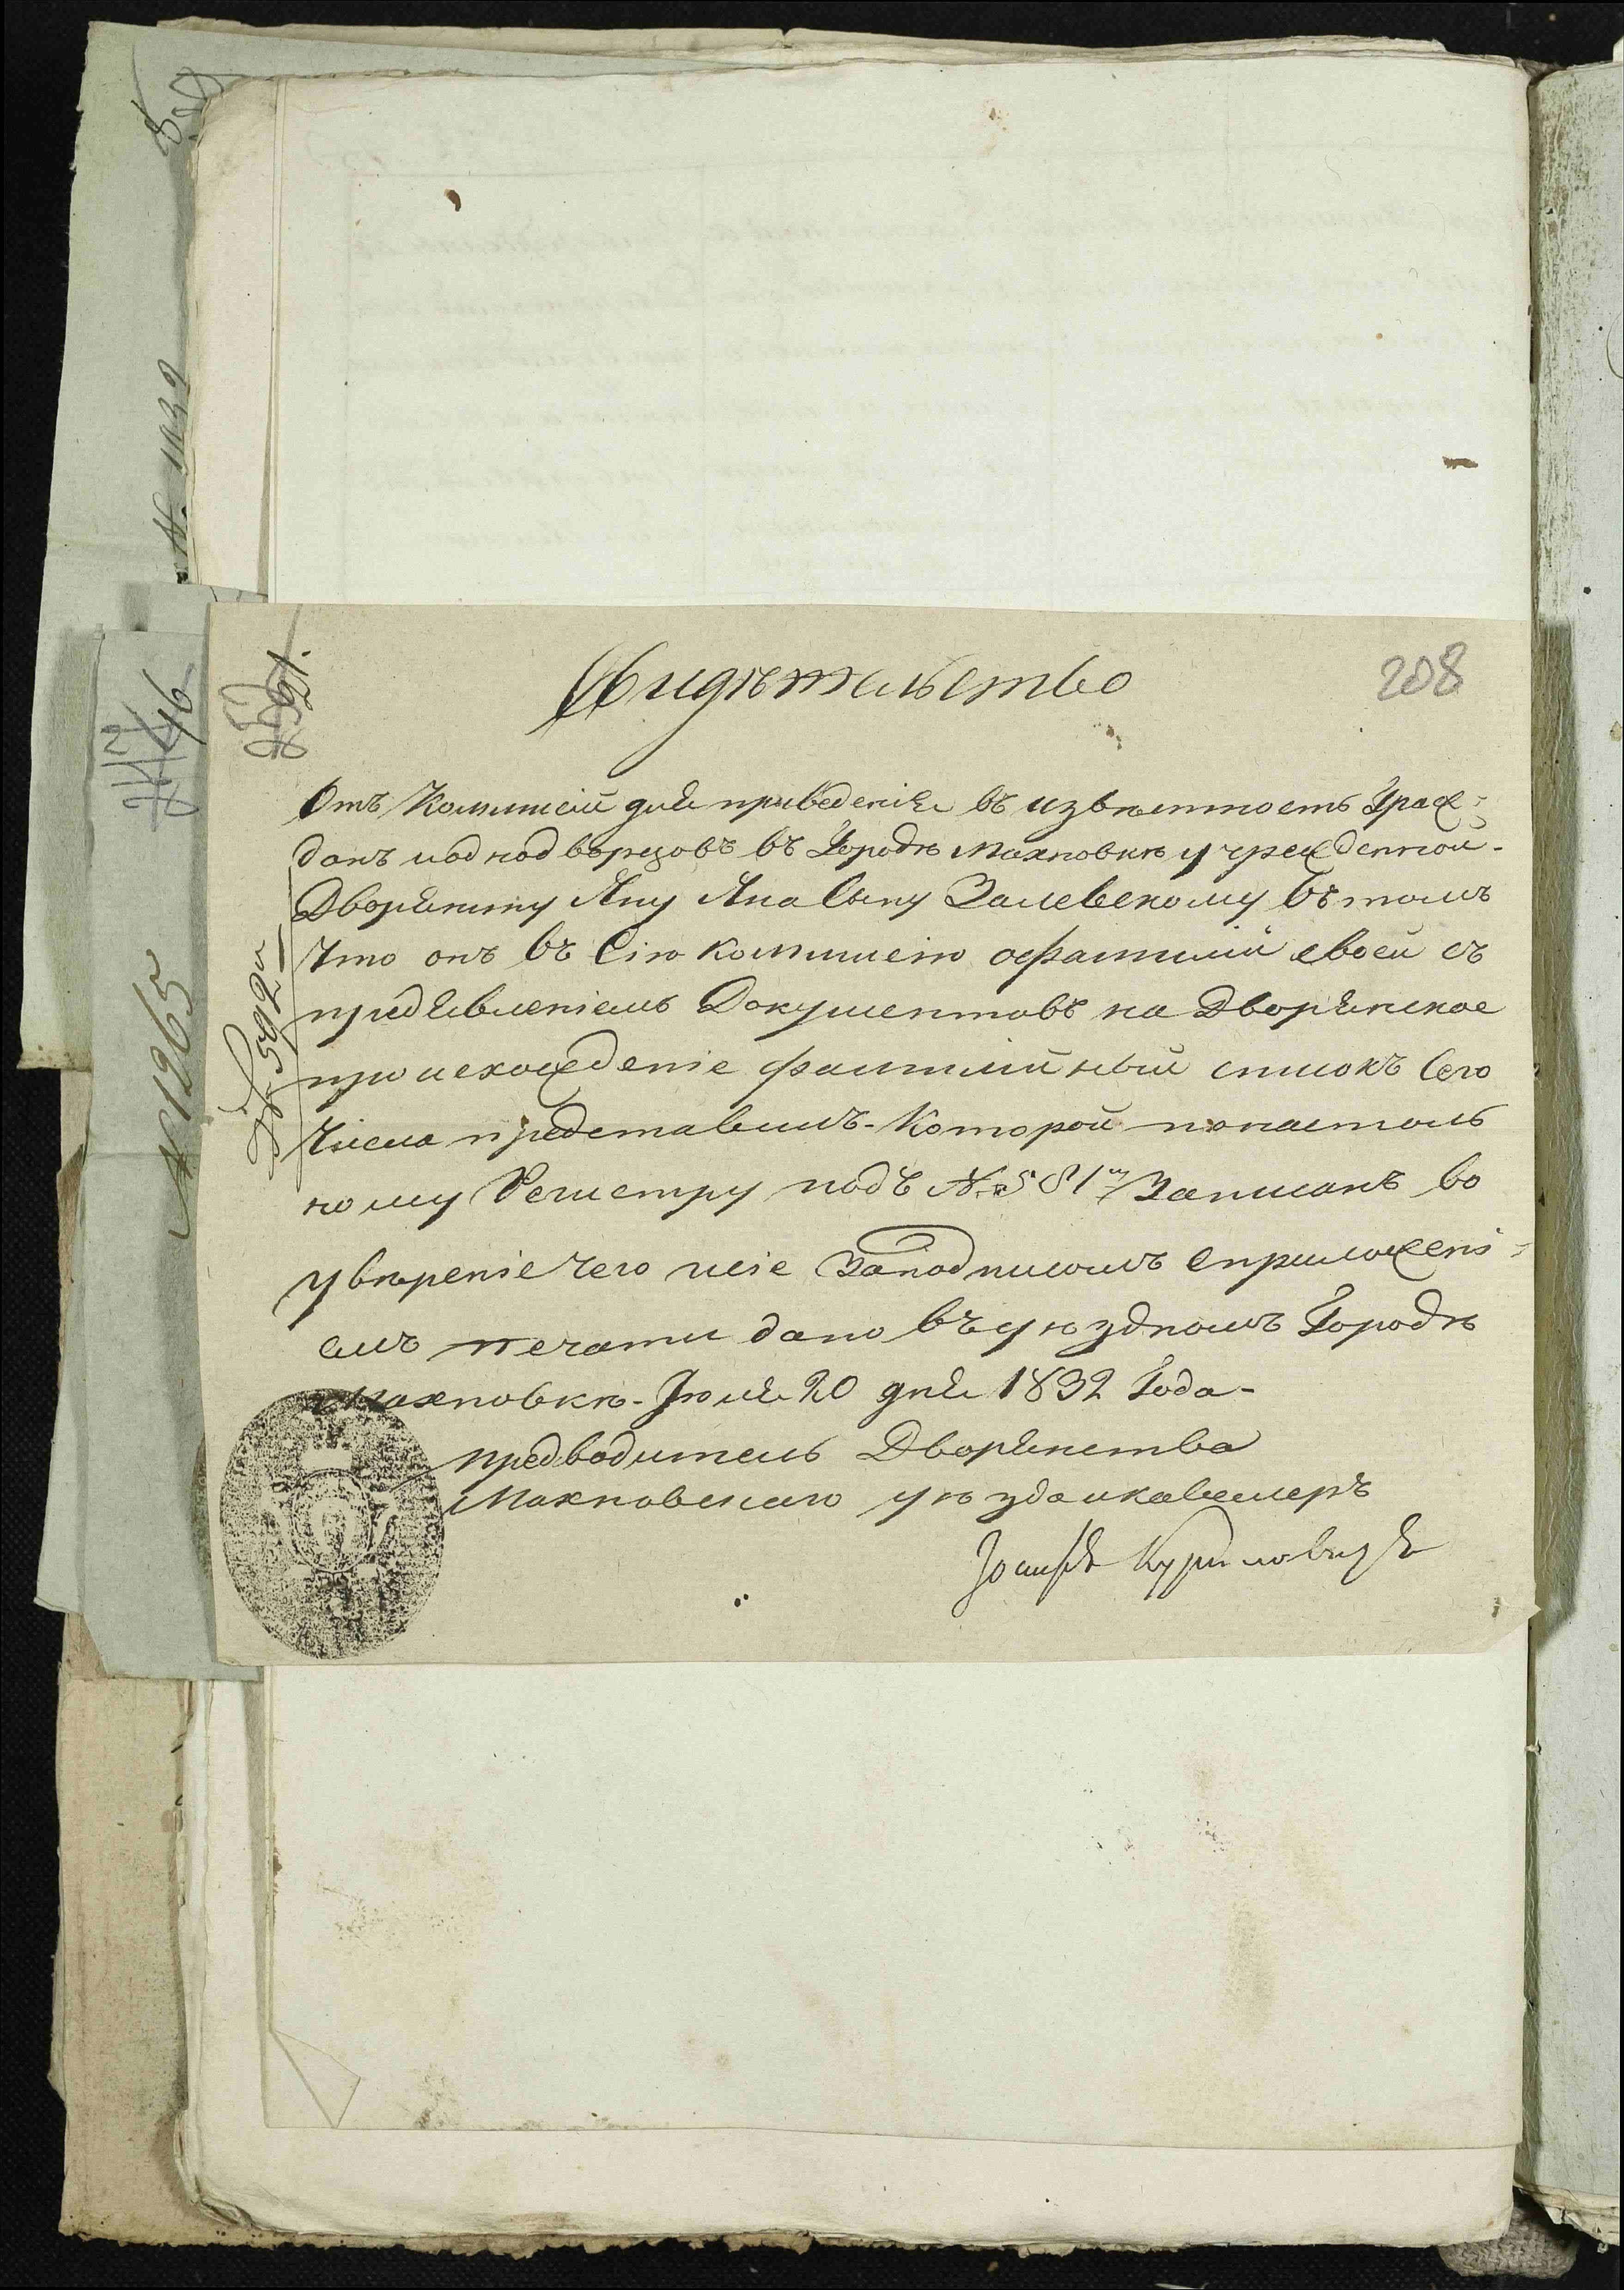 208
Свидѣтельство
Отъ Коммисіи для приведенія въ извѣстность Граж-
данъ иоднодворцовъ въ Городѣ Махновкѣ учрежденной-
Дворянину Яну Яна Сыну Залевскому Въ томъ
Что онъ Въ Сію Коммисію офамиліи своей съ
предявленіемъ Документовъ на Дворянское
происхожденіе фамилійный списокъ Сего
Числа представилъ. Которой понастоль
ному Регистру подъ № 581м Записанъ во
увѣреніе чего сіе Заподписомъ Сприложені-
емъ печати дано Въ уѣздномъ Городѣ
Махновкѣ. Іюля 20 дня 1832 Года-
предводитель Дворянства
Махновскаго уѣзда икавалеръ
Іосифъ Куриловичъ
№ 592й
№ 1265
46
N. 1032